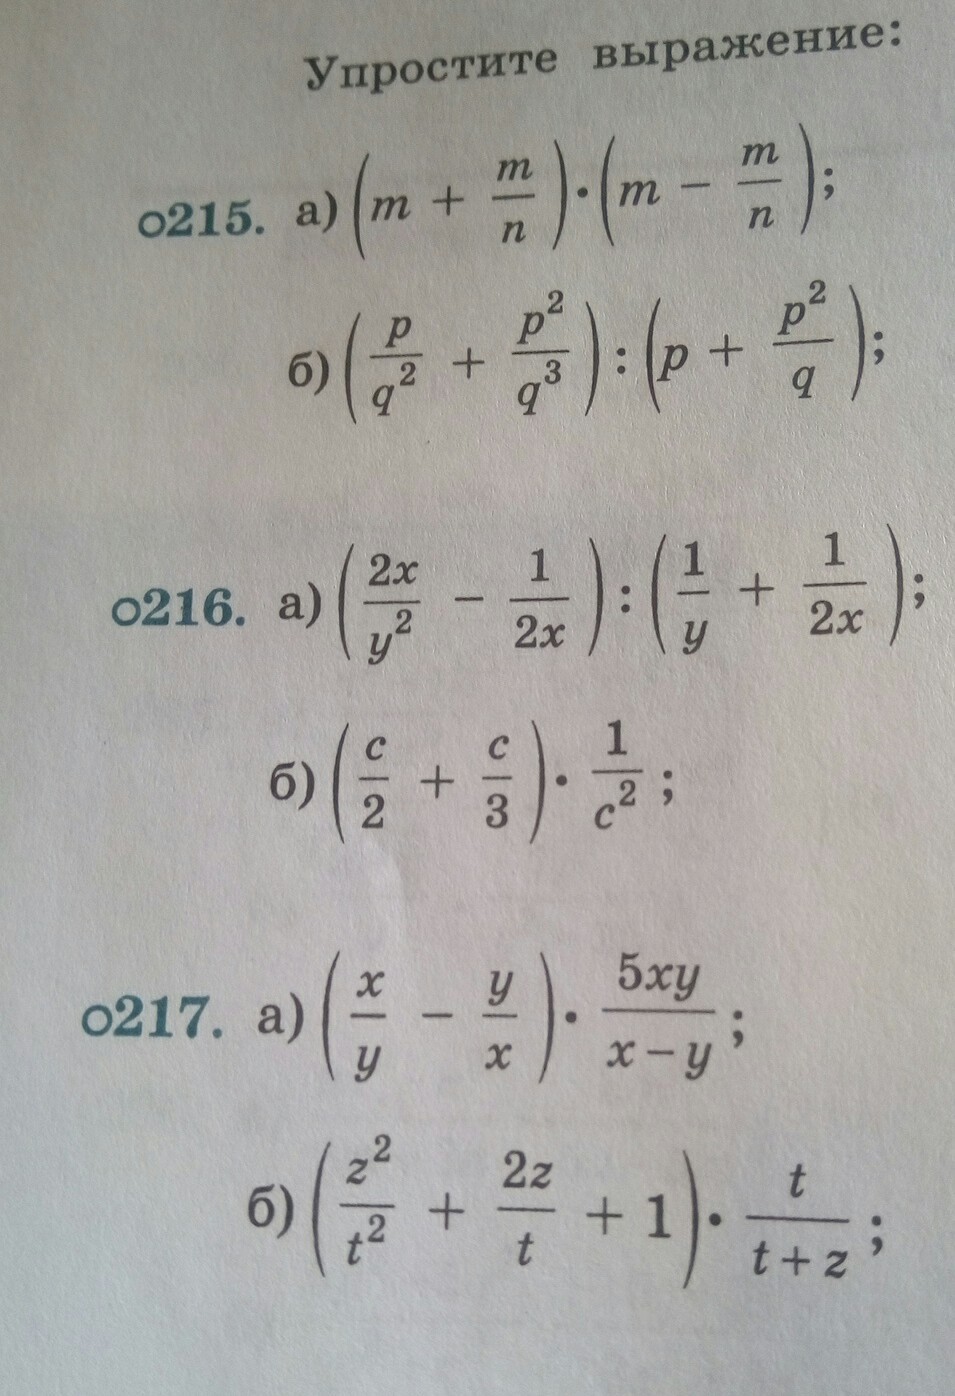 Упростите выражение:
о215. а) (m + m/n) · (m − m/n);
б) (p/q² + p²/q³) : (p + p²/q);
о216. а) (2x/y² − 1/2x) : (1/y + 1/2x);
б) (c/2 + c/3) · 1/c²;
о217. а) (x/y − y/x) · 5xy/(x − y);
б) (z²/t² + 2z/t + 1) · t/(t + z);